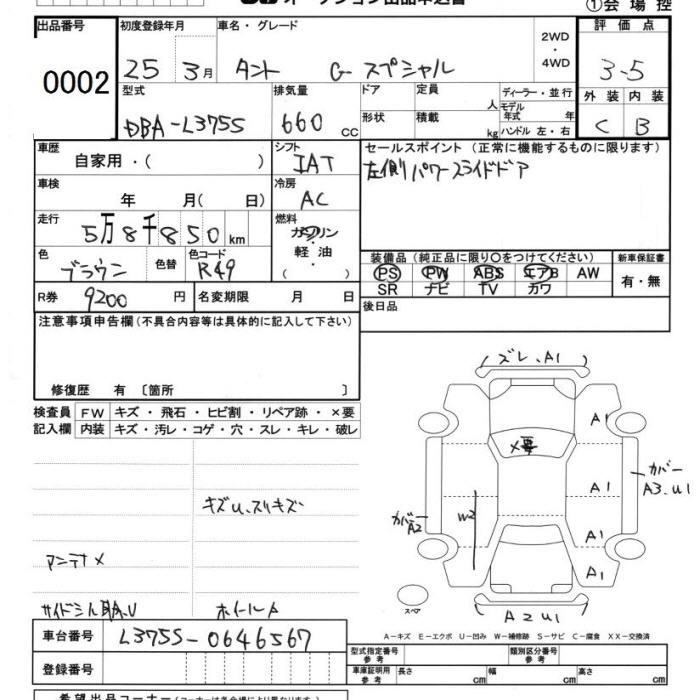 オークション出品申込書
①会場控
出品番号
0002
初度登録年月
25 3月
車名・グレード
タント G-スペシャル
2WD
・
4WD
評価点
3-5
型式
DBA-L375S
排気量
660 cc
ドア
定員
人
形状
積載
kg
ディーラー・並行
モデル年式 年
ハンドル 左・右
外装
内装
C
B
車歴
自家用・( )
シフト
IAT
セールスポイント(正常に機能するものに限ります)
左側パワースライドドア
車検
年 月(日)
冷房
AC
走行
5万8千850km
燃料
ガソリン
・
軽油
・
( )
色
ブラウン
色替
色コード
R49
装備品(純正品に限り○をつけてください)
PS PW ABS エアB AW
SR ナビ TV カワ
新車保証書
有・無
R券
9200円
名変期限 月 日
後日品
注意事項申告欄(不具合内容等は具体的に記入して下さい)
修復歴 有〔箇所 〕
検査員
記入欄
FW
キズ・飛石・ヒビ割・リペア跡・×要
内装
キズ・汚レ・コゲ・穴・スレ・キレ・破レ
キズU、スリキズ
アンテナ×
サイドシル
ホイールA
ズレ、A1
A1
×要
カバー
A3、U1
A1
W2
カバー
A2
A1
A1
スペア
A2U1
A-キズ E-エクボ U-凹み W-補修跡 S-サビ C-腐食 XX-交換済
車台番号
L375S-0646567
登録番号
型式指定番号
参考
類別区分番号
参考
車庫証明用
参考
長さ cm
幅 cm
高さ cm
希望出品コーナー(コーナーは各会場により異なります。)